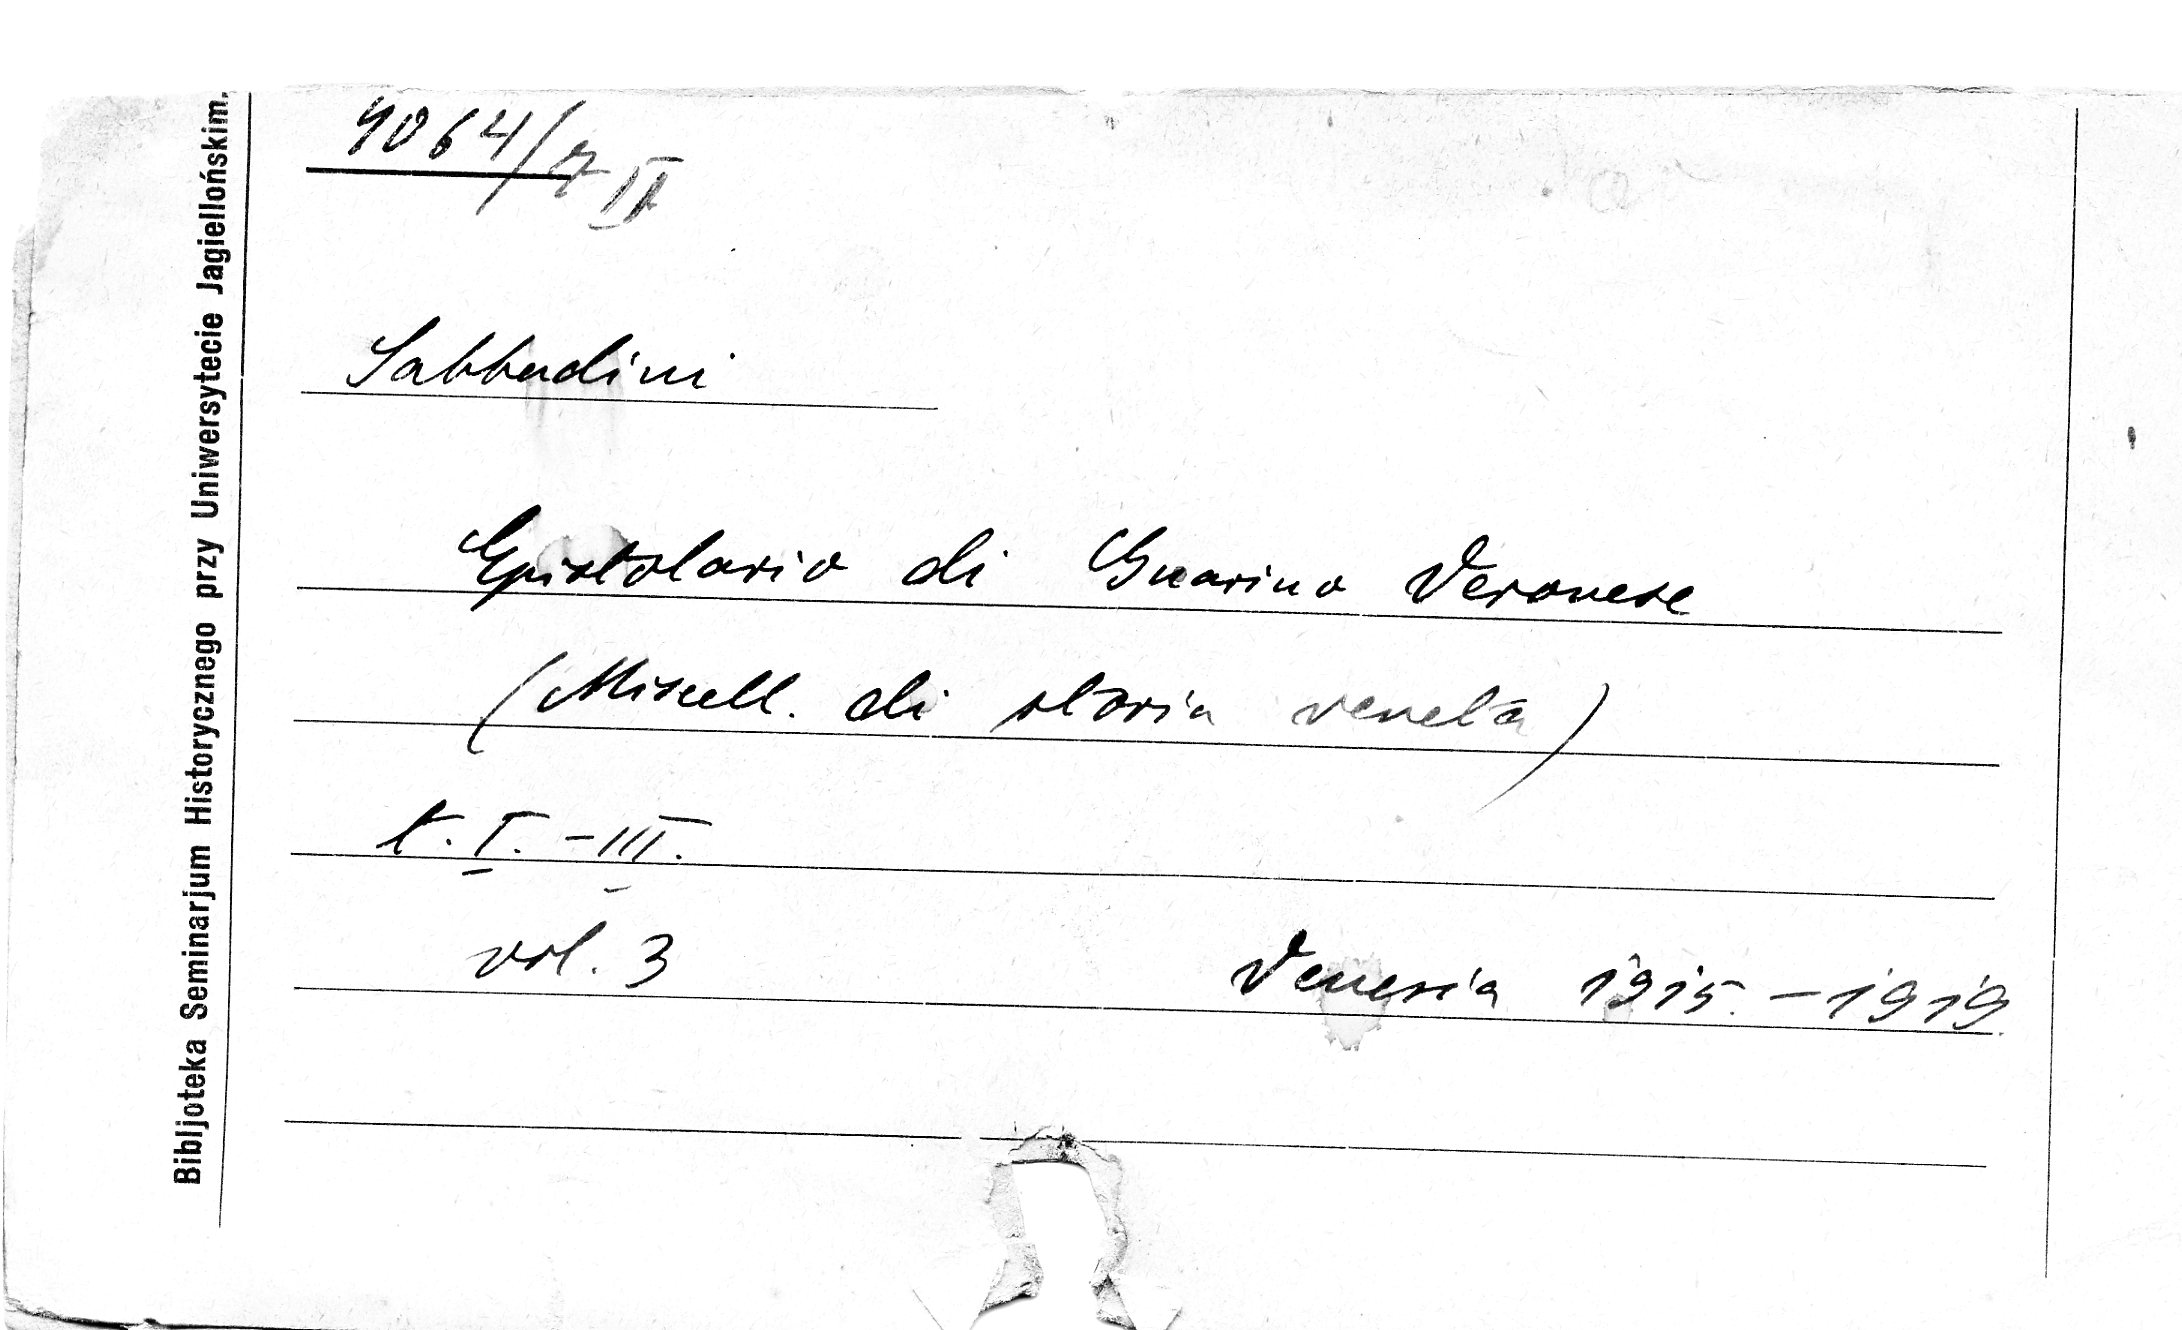 4064/7 II
Sabbadini
Epistolario di Guarino Veronese
(Miscell. di storia veneta)
t. I. - III.
vol. 3
Venezia 1915. - 1919.
Bibljoteka Seminarjum Historycznego przy Uniwersytecie Jagiellońskim.